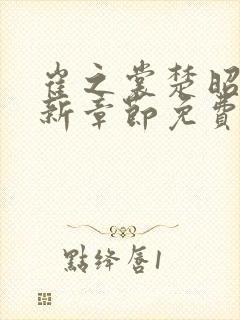 崔之裳楚昭
新章節免費
點绛唇1